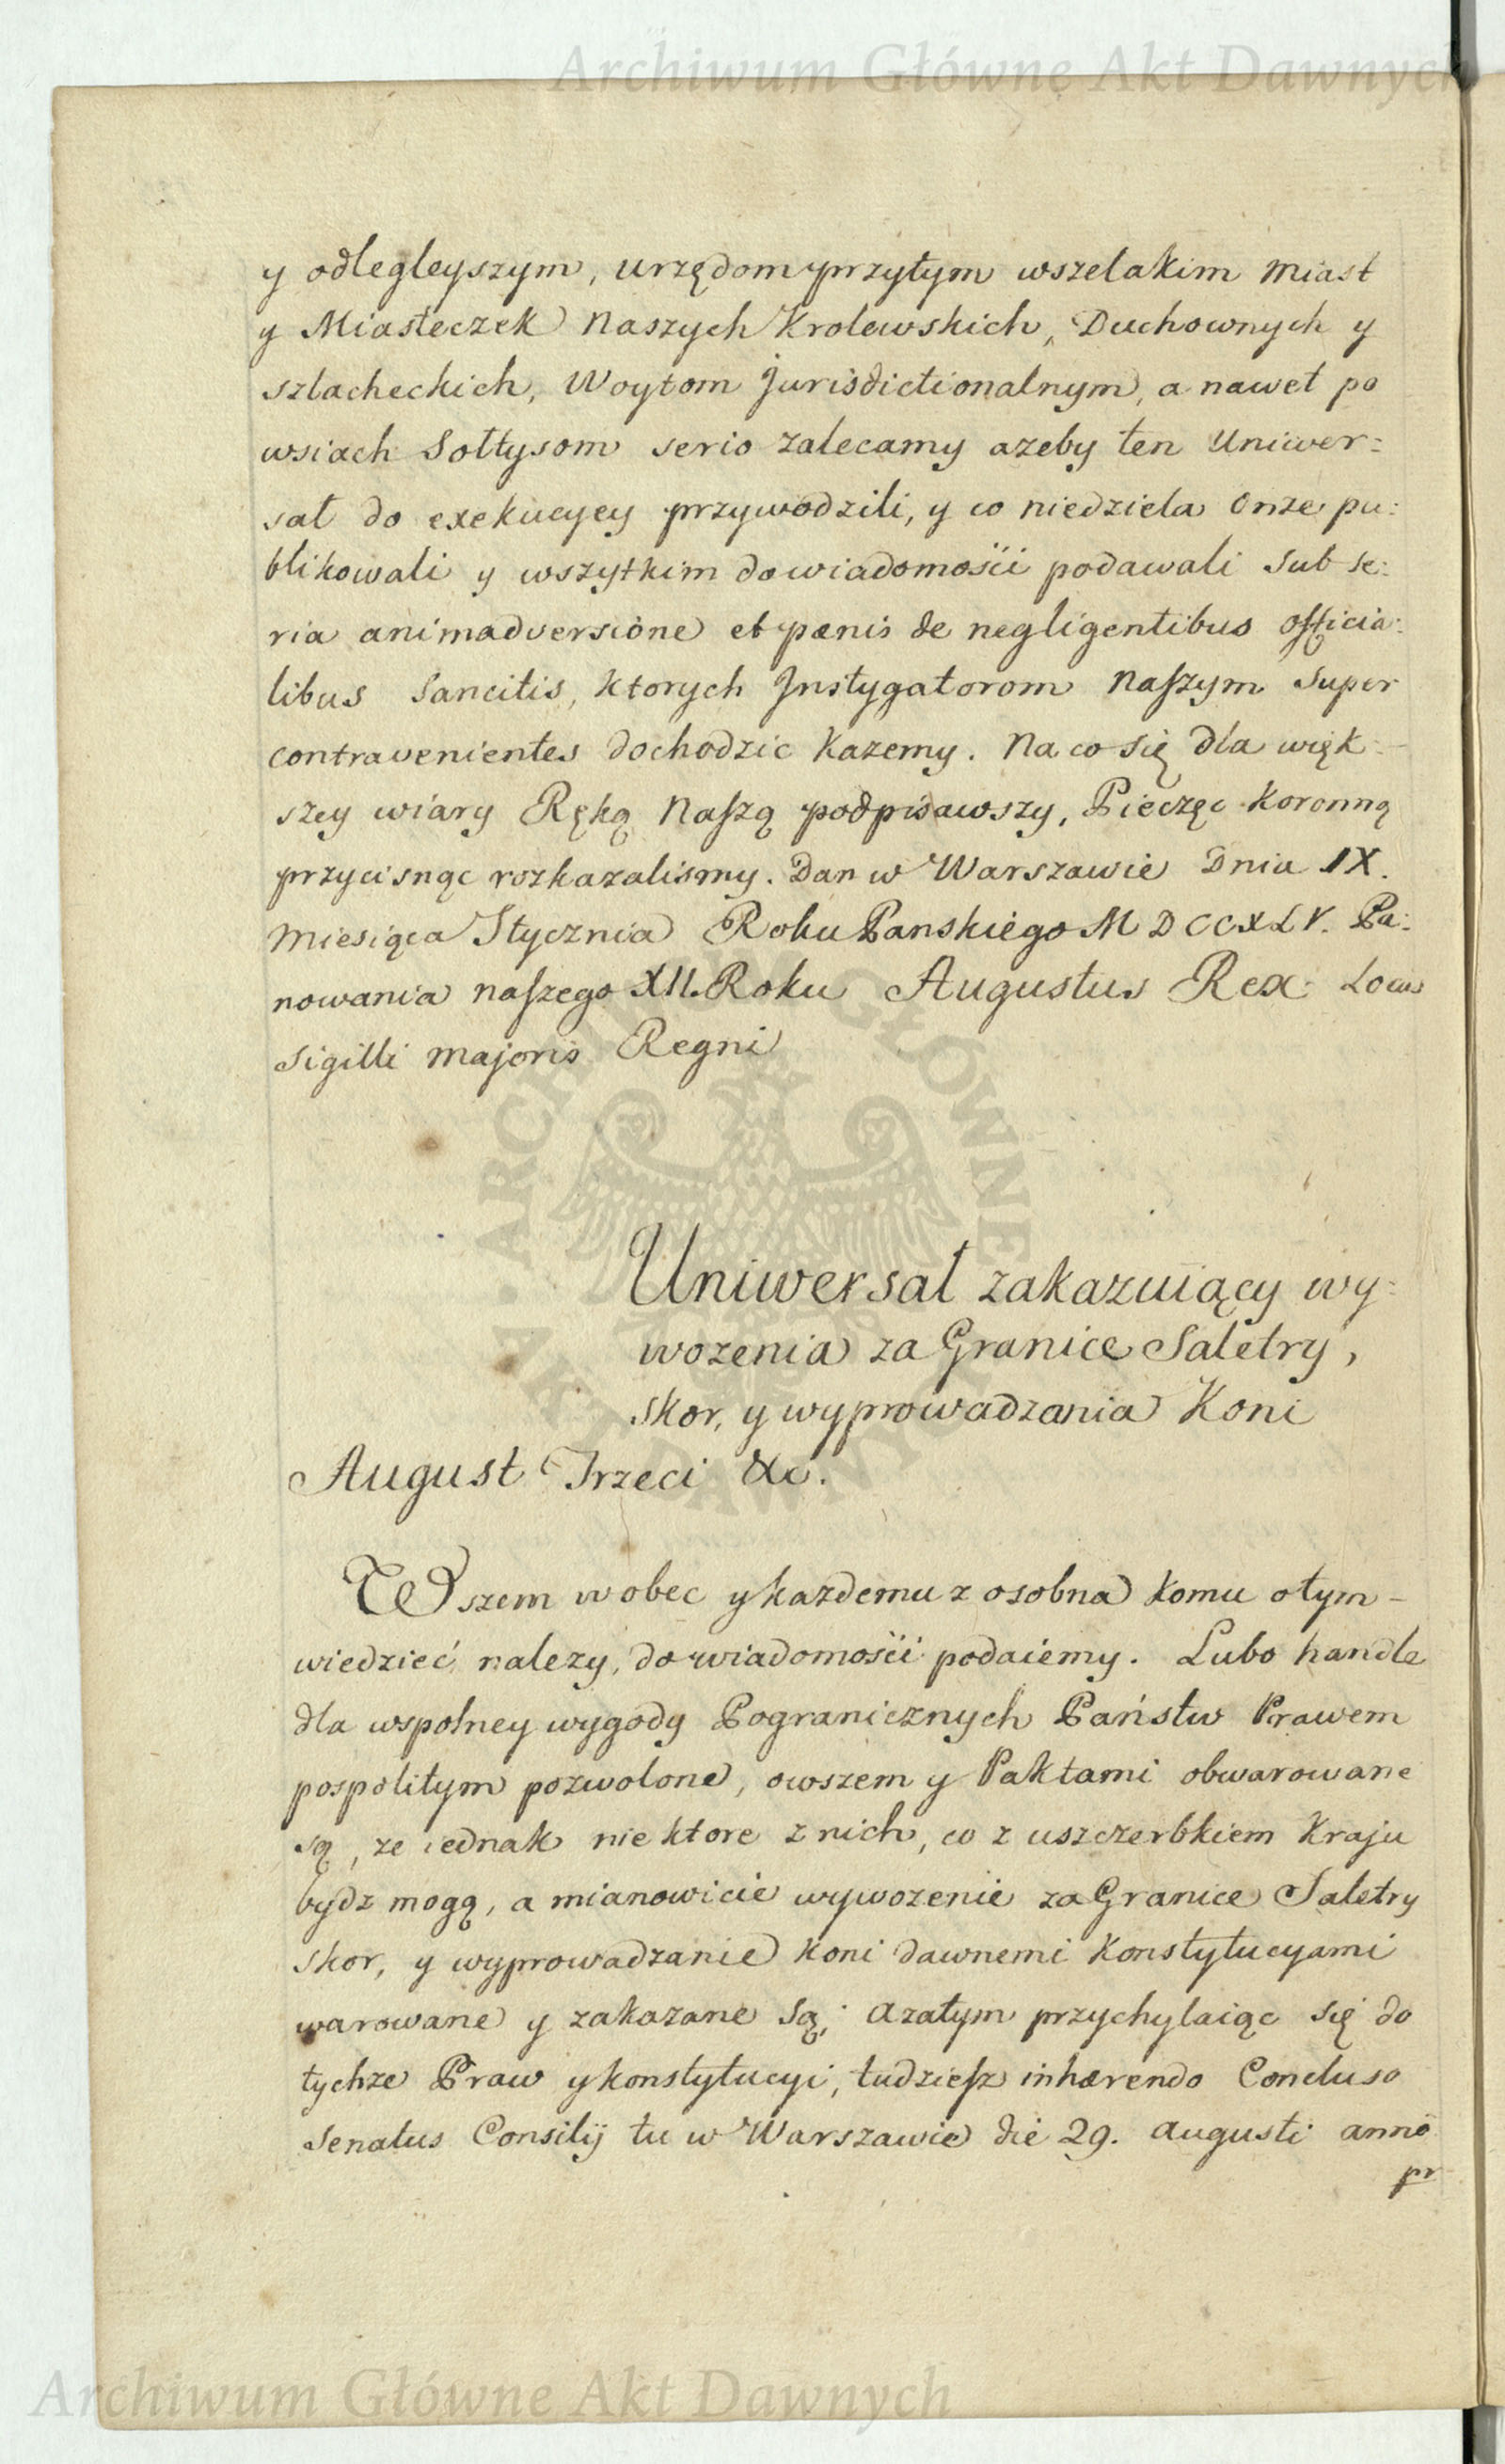 Archiwum Główne Akt Dawnych
y odlegleyszym, urzędom przytym wszelakim miast
y Miasteczek Naszych Krolewskich, Duchownych y
szlacheckich, Woytom Jurisdictionalnym, a nawet po
wsiach Sołtysom serio zalecamy azeby ten Uniwer:
sał do exekucyey przywodzili, y co niedziela onze pu:
blikowali y wszytkim do wiadomości podawali sub se:
ria animadversione et pœnis de negligentibus officia:
libus Sancitis, ktorych Jnstygatorom Naſzym super
contravenientes dochodzic kazemy. Na co się dla więk-
szey wiary Ręką Naſzą podpisawszy, Pieczęc koronną
przycisnąc rozkazalismy. Dan w Warszawie Dnia IX.
Miesiąca Stycznia Roku Panskiego MDCCXLV. Pa:
nowania naſzego XII. Roku Augustus Rex Locus
Sigilli majoris Regni
ARCHIWUM GŁÓWNE AKT DAWNYCH
Uniwersał zakazuiący wy:
wozenia za Granice Saletry,
skor, y wyprowadzania Koni
August Trzeci &c.
Wszem wobec y kazdemu z osobna komu o tym-
wiedzieć nalezy, do wiadomości podaiemy. Lubo handle
dla wspolney wygody Pogranicznych Państw Prawem
pospolitym pozwolone, owszem y Paktami obwarowane
są, ze iednak nie ktore z nich, co z uszczerbkiem Kraju
bydz mogą, a mianowicie wywozenie za Granice Saletry
skor, y wyprowadzanie Koni dawnemi Konstytucyami
warowane y zakazane są; a zatym przychylaiąc się do
tychze Praw y konstytucyi, tudzieſz inhærendo Concluso
Senatus Consilij tu w Warszawie die 29. Augusti anno
pr
Archiwum Główne Akt Dawnych